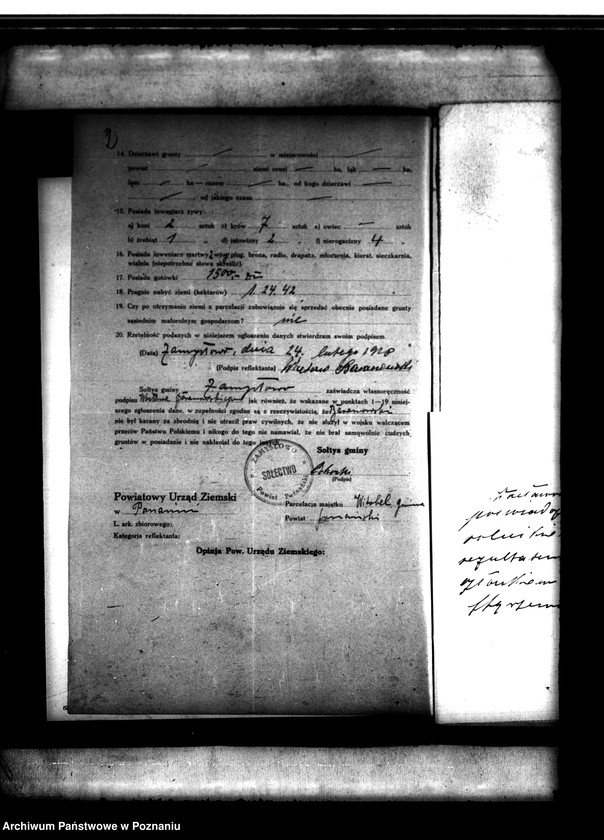 2
14. Dzierżawi grunty — w miejscowości —
powiat — ziemi ornej — ha, łąk — ha,
lasu — ha — razem — ha., od kogo dzierżawi —
— , od jakiego czasu
15. Posiada inwentarz żywy:
a) koni 2 sztuk c) krów 7 sztuk e) owiec — sztuk
b) źrebiąt 1 „ d) jałowizny 2 „ f) nierogacizny 4 „
16. Posiada inwentarz martwy: wozy, pług, brona, radło, drapacz, młocarnia, kierat, sieczkarnia,
wialnia (niepotrzebne słowa skreślić).
17. Posiada gotówki 1500,—
18. Pragnie nabyć ziemi (hektarów) 1.24.42
19. Czy po otrzymaniu ziemi z parcelacji zobowiązuje się sprzedać obecnie posiadane grunty
sąsiednim małorolnym gospodarzom? nie
20. Rzetelność podanych w niniejszem zgłoszeniu danych stwierdzam swoim podpisem
(Data) Zamysłowo, dnia 24. lutego 1928
(Podpis reflektanta) Baranowski
Sołtys gminy Zamysłowo zaświadcza własnoręczność
podpisu jak również, że wskazane w punktach 1—19 niniej-
szego zgłoszenia dane, w zupełności zgodne są z rzeczywistością, że Baranowski
nie był karany za zbrodnię i nie utracił praw cywilnych, że nie służył w wojsku walczącem
przeciw Państwu Polskiemu i nikogo do tego nie namawiał, że nie brał samowolnie cudzych
gruntów w posiadanie i nie nakłaniał do tego innych.
ZAMYSŁOWO
SOŁECTWO
Powiat Poznański
Sołtys gminy
(Podpis)
Powiatowy Urząd Ziemski
w Poznaniu
L. ark. zbiorowego:
Kategorja reflektanta:
Parcelacja majątku Witobel gmina
Powiat poznański
Opinja Pow. Urzędu Ziemskiego:
Archiwum Państwowe w Poznaniu